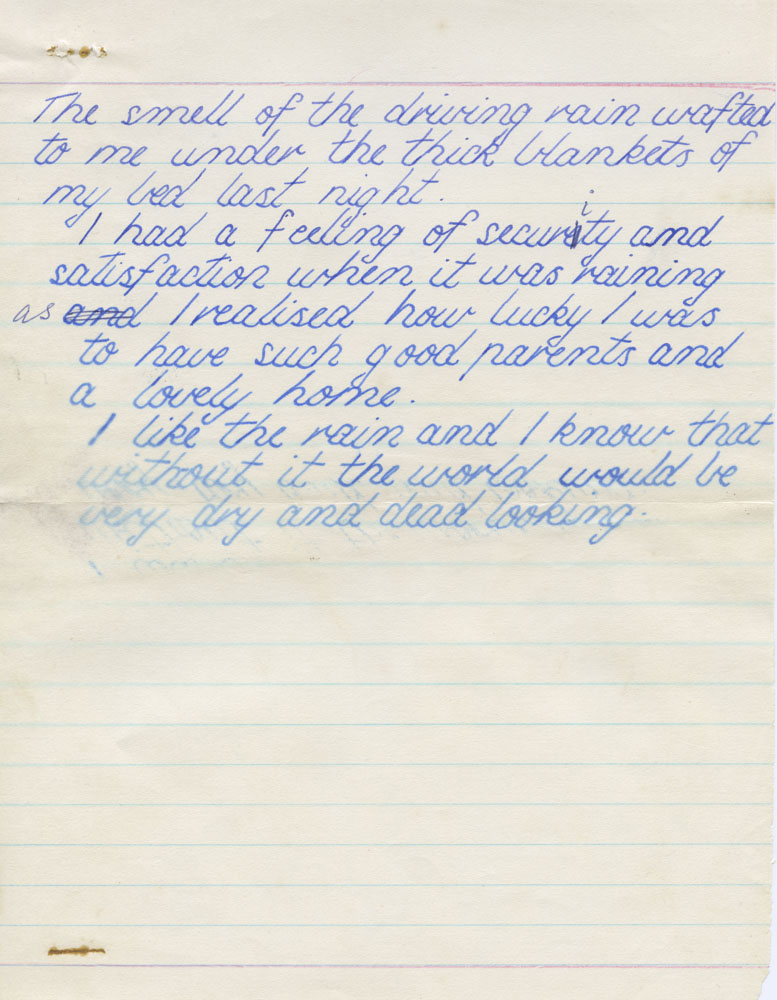 The smell of the driving rain wafted
to me under the thick blankets of
my bed last night.
I had a feeling of security and
satisfaction when it was raining
as and I realised how lucky I was
to have such good parents and
a lovely home.
I like the rain and I know that
without it the world would be
very dry and dead looking.